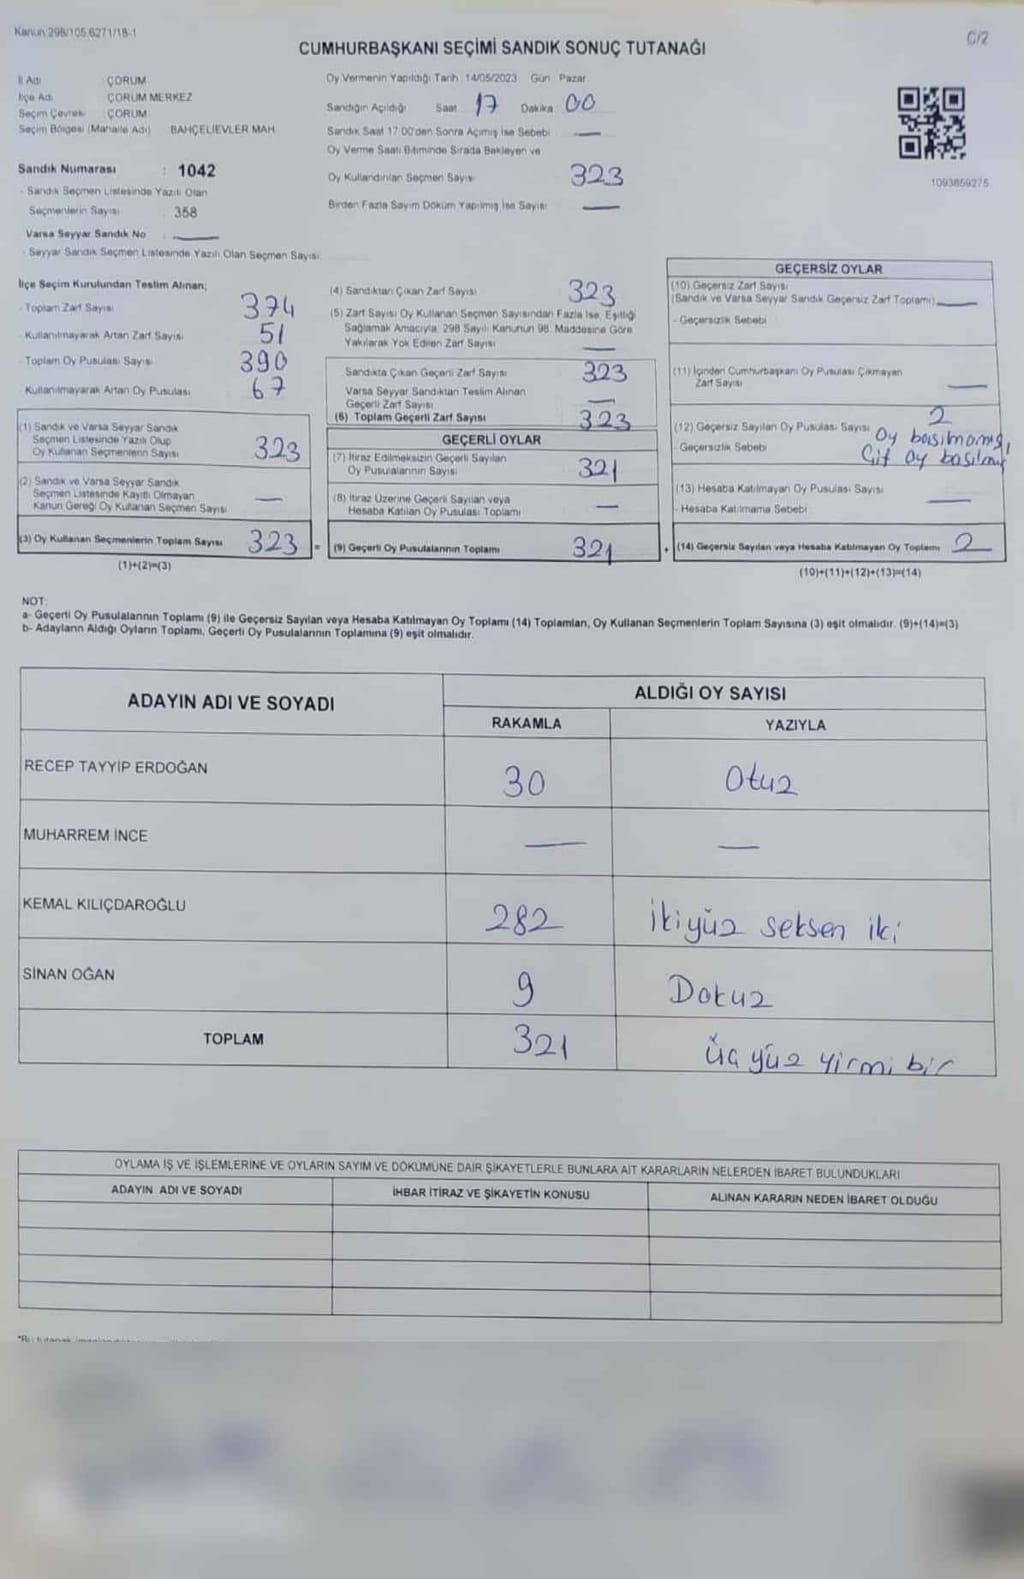 Kanun 298/105.6271/18-1
C/2
CUMHURBAŞKANI SEÇİMİ SANDIK SONUÇ TUTANAĞI
İl Adı : ÇORUM
İlçe Adı : ÇORUM MERKEZ
Seçim Çevresi : ÇORUM
Seçim Bölgesi (Mahalle Adı) BAHÇELİEVLER MAH.
Sandık Numarası : 1042
- Sandık Seçmen Listesinde Yazılı Olan
Seçmenlerin Sayısı : 358
Varsa Seyyar Sandık No : —
- Seyyar Sandık Seçmen Listesinde Yazılı Olan Seçmen Sayısı
Oy Vermenin Yapıldığı Tarih 14/05/2023 Gün Pazar
Sandığın Açıldığı Saat 17 Dakika 00
Sandık Saat 17:00'den Sonra Açılmış İse Sebebi —
Oy Verme Saati Bitiminde Sırada Bekleyen ve
Oy Kullandırılan Seçmen Sayısı 323
Birden Fazla Sayım Döküm Yapılmış İse Sayısı —
1093859275
İlçe Seçim Kurulundan Teslim Alınan;
- Toplam Zarf Sayısı 374
- Kullanılmayarak Artan Zarf Sayısı 51
- Toplam Oy Pusulası Sayısı 390
- Kullanılmayarak Artan Oy Pusulası 67
(1) Sandık ve Varsa Seyyar Sandık
Seçmen Listesinde Yazılı Olup
Oy Kullanan Seçmenlerin Sayısı 323
(2) Sandık ve Varsa Seyyar Sandık
Seçmen Listesinde Kayıtlı Olmayan
Kanun Gereği Oy Kullanan Seçmen Sayısı —
(3) Oy Kullanan Seçmenlerin Toplam Sayısı 323 =
(1)+(2)=(3)
(4) Sandıktan Çıkan Zarf Sayısı 323
(5) Zarf Sayısı Oy Kullanan Seçmen Sayısından Fazla İse, Eşitliği
Sağlamak Amacıyla, 298 Sayılı Kanunun 98. Maddesine Göre
Yakılarak Yok Edilen Zarf Sayısı —
Sandıkta Çıkan Geçerli Zarf Sayısı 323
Varsa Seyyar Sandıktan Teslim Alınan
Geçerli Zarf Sayısı —
(6) Toplam Geçerli Zarf Sayısı 323
GEÇERLİ OYLAR
(7) İtiraz Edilmeksizin Geçerli Sayılan
Oy Pusulalarının Sayısı 321
(8) İtiraz Üzerine Geçerli Sayılan veya
Hesaba Katılan Oy Pusulası Toplamı —
(9) Geçerli Oy Pusulalarının Toplamı 321 +
GEÇERSİZ OYLAR
(10) Geçersiz Zarf Sayısı
(Sandık ve Varsa Seyyar Sandık Geçersiz Zarf Toplamı) —
- Geçersizlik Sebebi
(11) İçinden Cumhurbaşkanı Oy Pusulası Çıkmayan
Zarf Sayısı —
(12) Geçersiz Sayılan Oy Pusulası Sayısı 2
- Geçersizlik Sebebi Oy basılmamış,
Çift oy basılmış
(13) Hesaba Katılmayan Oy Pusulası Sayısı —
- Hesaba Katılmama Sebebi
(14) Geçersiz Sayılan veya Hesaba Katılmayan Oy Toplamı 2
(10)+(11)+(12)+(13)=(14)
NOT:
a- Geçerli Oy Pusulalarının Toplamı (9) ile Geçersiz Sayılan veya Hesaba Katılmayan Oy Toplamı (14) Toplamları, Oy Kullanan Seçmenlerin Toplam Sayısına (3) eşit olmalıdır. (9)+(14)=(3)
b- Adayların Aldığı Oyların Toplamı, Geçerli Oy Pusulalarının Toplamına (9) eşit olmalıdır.
ADAYIN ADI VE SOYADI ALDIĞI OY SAYISI
RAKAMLA YAZIYLA
RECEP TAYYİP ERDOĞAN 30 Otuz
MUHARREM İNCE — —
KEMAL KILIÇDAROĞLU 282 İkiyüz seksen iki
SİNAN OĞAN 9 Dokuz
TOPLAM 321 üç yüz yirmi bir
OYLAMA İŞ VE İŞLEMLERİNE VE OYLARIN SAYIM VE DÖKÜMÜNE DAİR ŞİKAYETLERLE BUNLARA AİT KARARLARIN NELERDEN İBARET BULUNDUKLARI
ADAYIN ADI VE SOYADI İHBAR İTİRAZ VE ŞİKAYETİN KONUSU ALINAN KARARIN NEDEN İBARET OLDUĞU